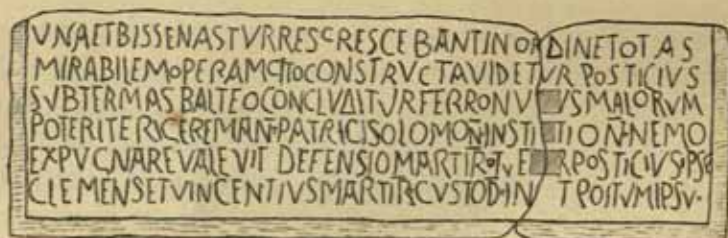 VNAETBISSENASTVRRESCRESCEBANTINORDINETOTAS
MIRABILEMOPERAMCITOCONSTRVCTAVIDETVRPOSTICIVS
SVBTERMASBALTEOCONCLVDITVRFERRONV VSMALORVM
POTERITERICEREMAN·PATRICISOLOMON·INSTI TION·NEMO
EXPVCNAREVALEVIT DEFENSIOMARTIR·TVE RPOSTICIVSIPSE
CLEMENSETVINCENTIVSMARTIRCVSTOD·IN TPOITVMIPSV·